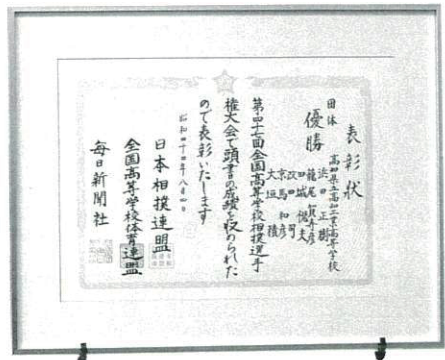 表彰状
団体
優勝
高知県立高知工業高等学校
浜田正樹
籠尾
田城
馬和彦
大垣積
第四十七回全国高等学校相撲選手
権大会で頭書の成績を収められた
ので表彰いたします
昭和四十四年八月四日
日本相撲連盟
全国高等学校体育連盟
毎日新聞社